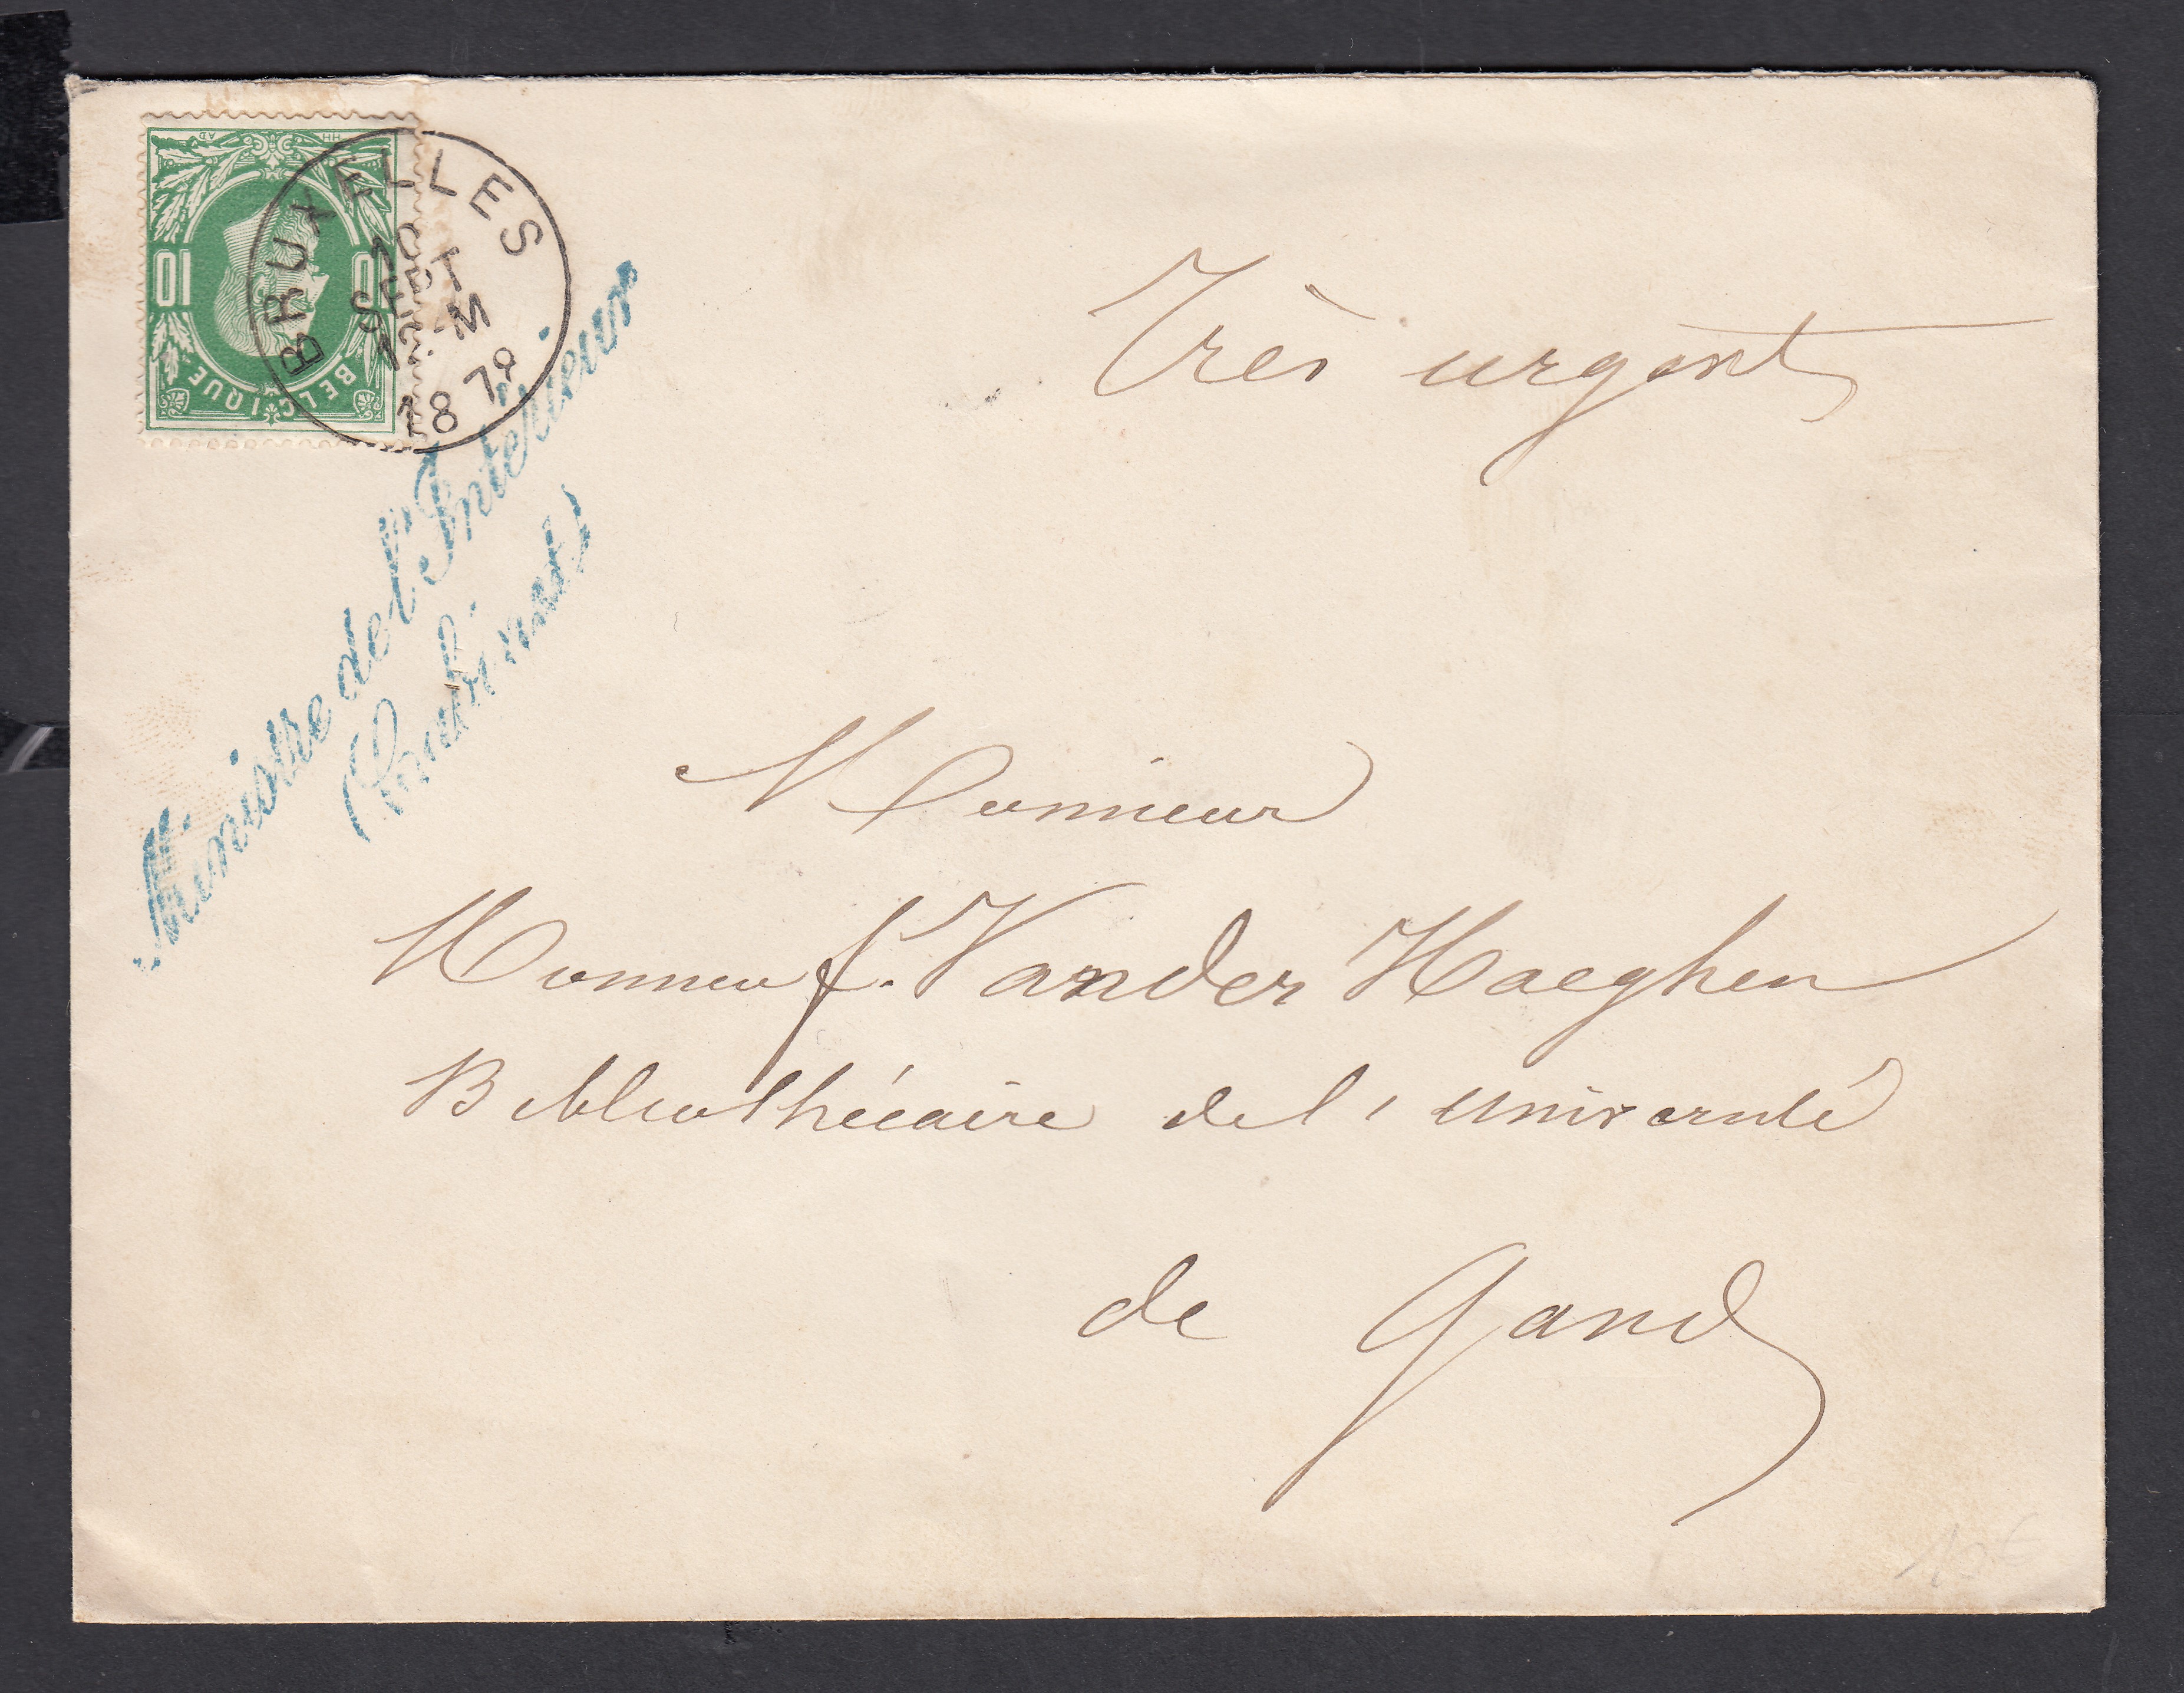 BELGIQUE
10
10
BRUXELLES
SEPT
M
1878
Très urgent
Ministre de l'Intérieur
(Cabinet)
Monsieur
Monsieur f. Vander Haeghen
Bibliothécaire de l'université
de Gand